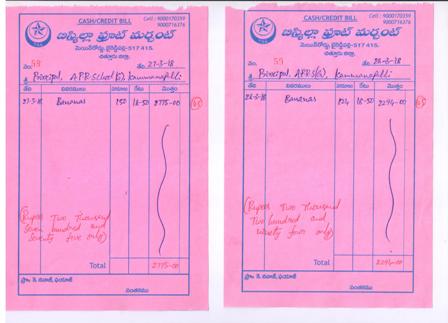 CASH/CREDIT BILL
Cell : 9000170359
9000716376
బిస్మిల్లా ఫ్రూట్ మర్చంట్
చిత్తూరు జిల్లా.
నెం. 59
తేది. 27-3-18
శ్రీ Principal, A.P.R. School (G), Kammanapalli
తేది వివరములు పరిమాణం రేటు మొత్తం
27-3-18 Bananas 150 18-50 2775-00
(Rupees Two Thousand
Seven hundred and
Seventy five only)
Total 2775-00
సంతకము
CASH/CREDIT BILL
Cell : 9000170359
9000716376
బిస్మిల్లా ఫ్రూట్ మర్చంట్
చిత్తూరు జిల్లా.
నెం.
తేది. 28-3-18
శ్రీ Principal, A.P.R.S(G), Kammanapalli
తేది వివరములు పరిమాణం రేటు మొత్తం
28-3-18 Bananas 124 18-50 2294-00
(Rupees Two Thousand
Two hundred and
ninety four only)
Total 2294-00
సంతకము